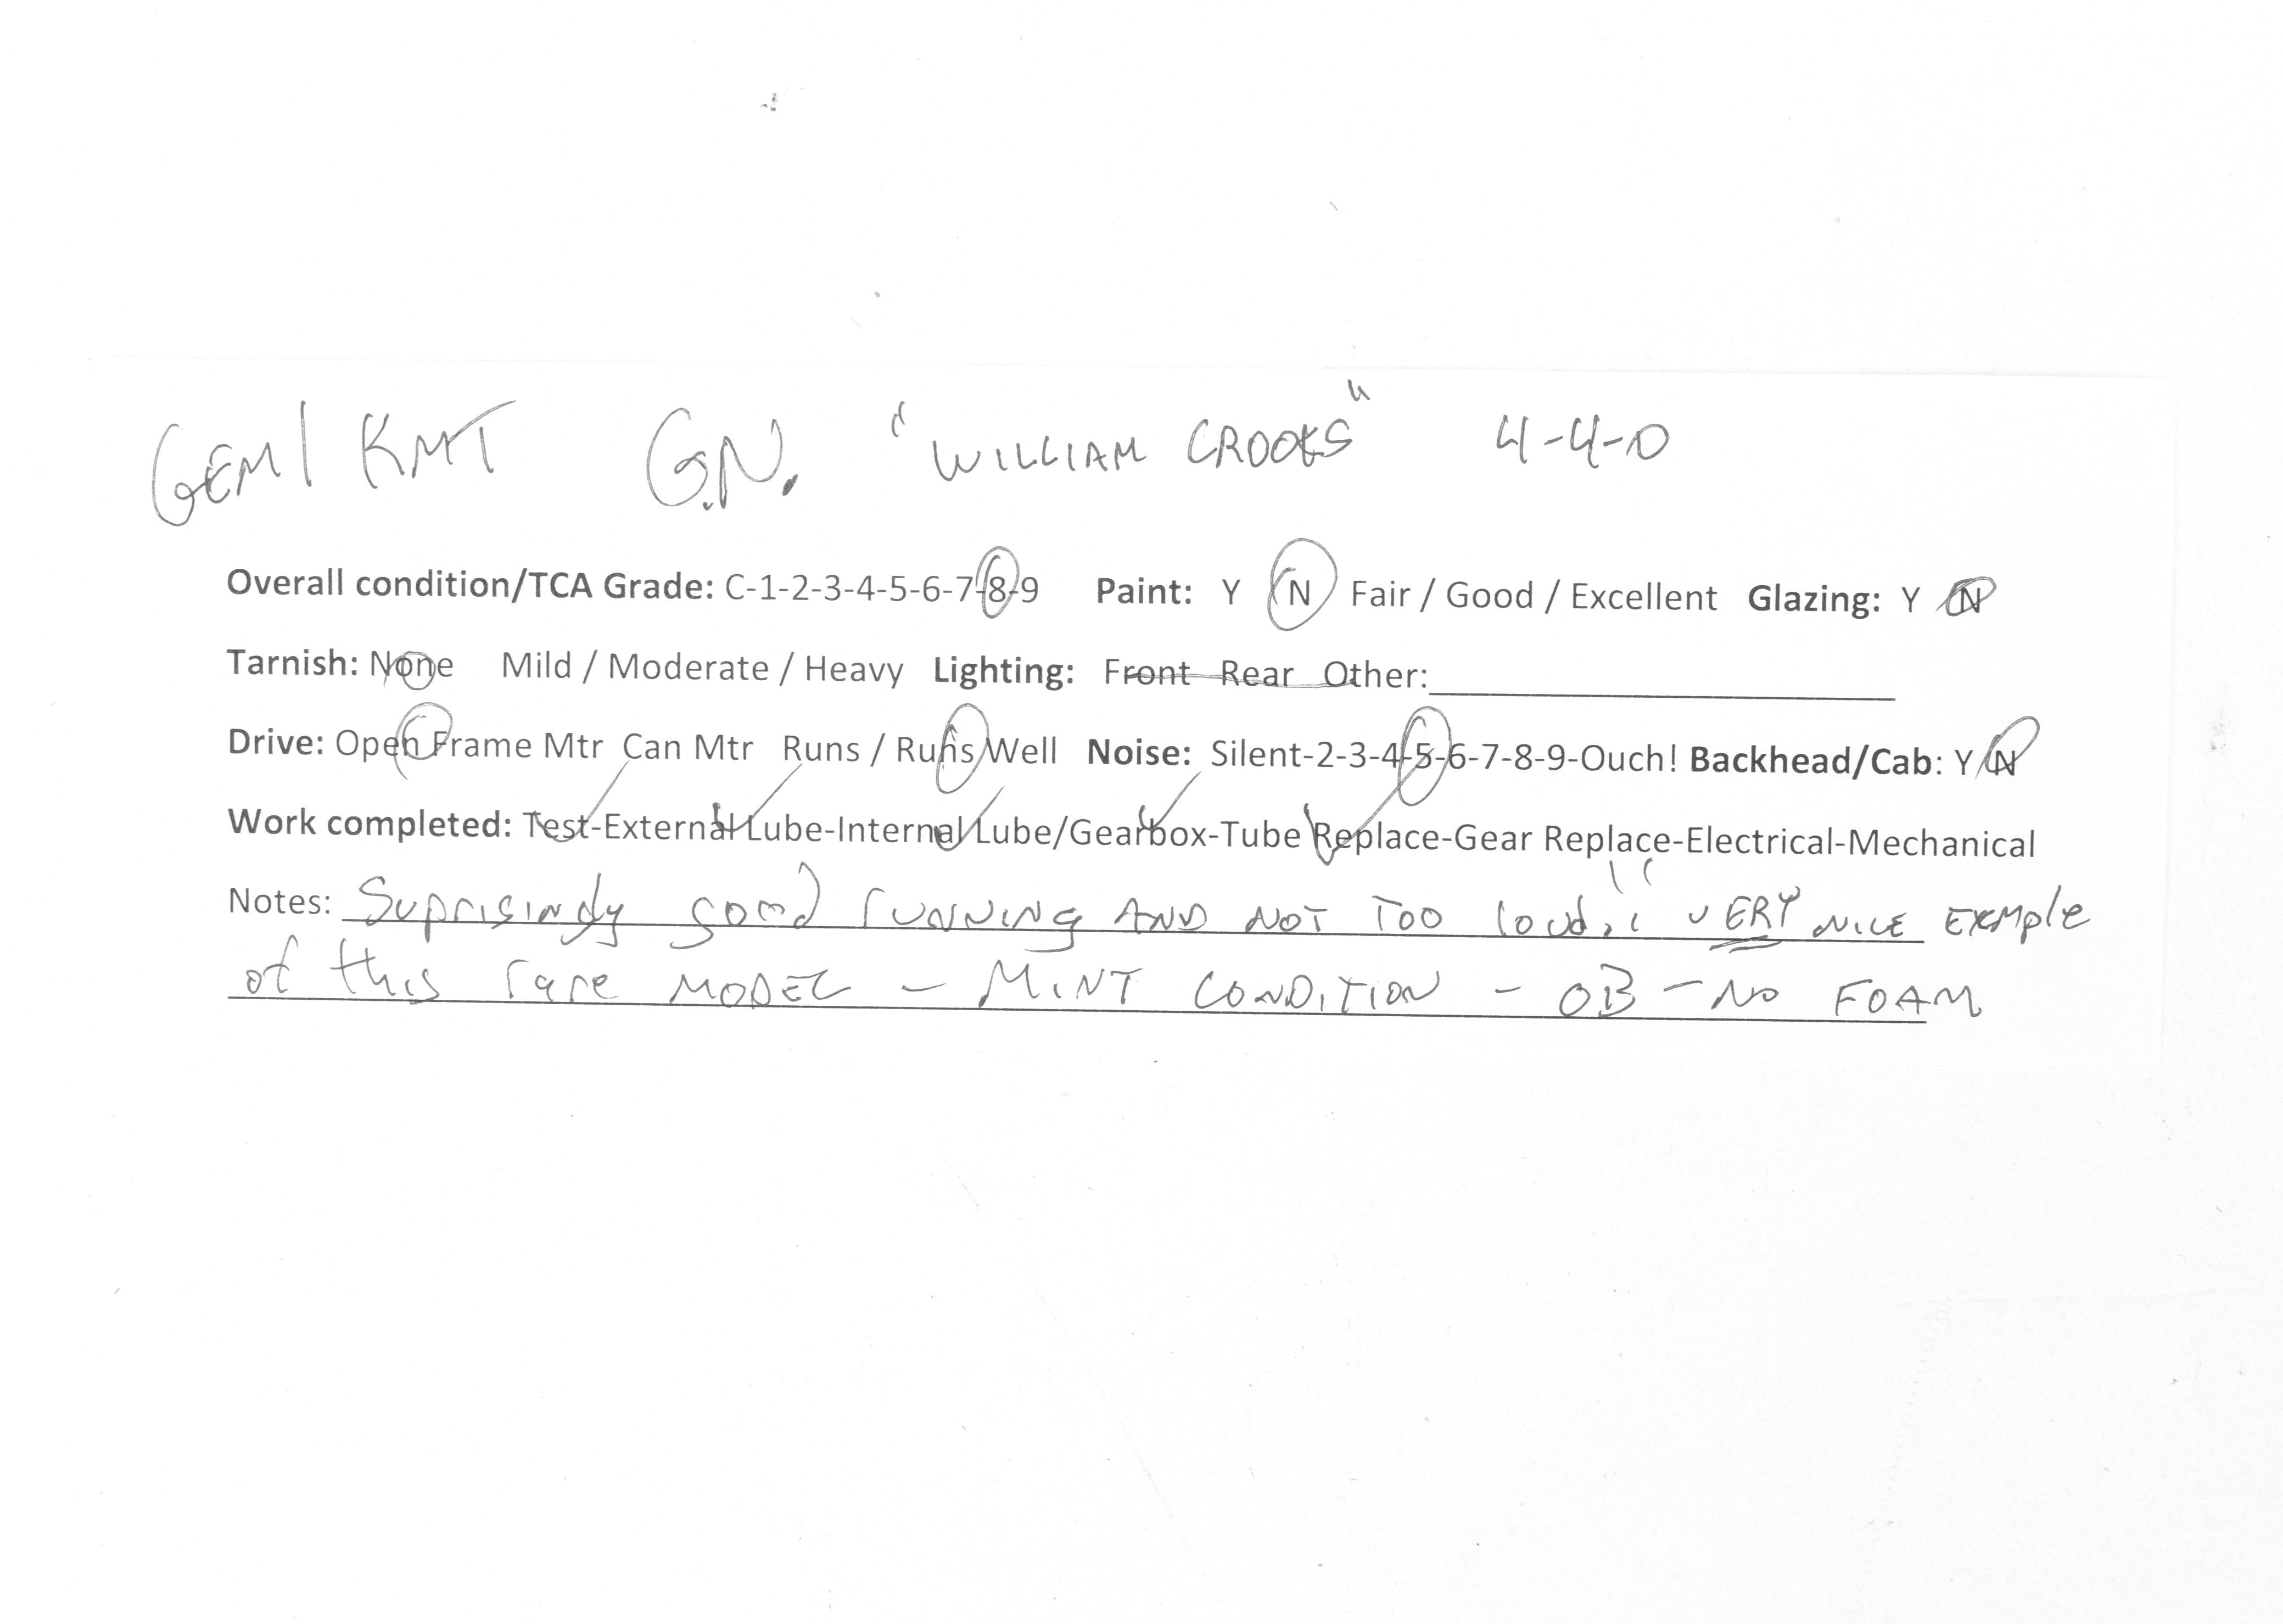 GEM/KMT G.N. "WILLIAM CROOKS" 4-4-0
Overall condition/TCA Grade: C-1-2-3-4-5-6-7-8-9 Paint: Y N Fair / Good / Excellent Glazing: Y N
Tarnish: None Mild / Moderate / Heavy Lighting: Front Rear Other:
Drive: Open Frame Mtr Can Mtr Runs / Runs Well Noise: Silent-2-3-4-5-6-7-8-9-Ouch! Backhead/Cab: Y/N
Work completed: Test-External Lube-Internal Lube/Gearbox-Tube Replace-Gear Replace-Electrical-Mechanical
Notes: Suprisingly good running AND NOT TOO loud, VERY NICE EXMple
of this rare MODEL - MINT CONDITION - OB - NO FOAM